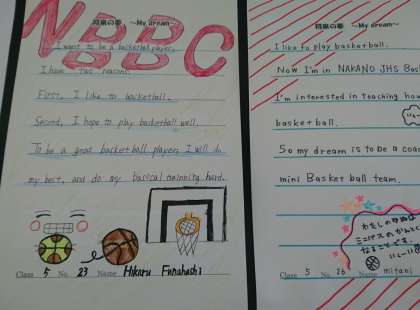 NBBC
将来の夢 ～My dream～
I want to be a basketball player.
I have two reasons.
First, I like to basketball.
Second, I hope to play basketball well.
To be a good basketball player, I will do
my best, and do my basical trainning hard.
Class 5 No. 23 Name Hikaru Funahashi
将来の夢 ～My dream～
I like to play basketball.
Now I'm in NAKANO JHS Bas
I'm interested in teaching how
basketball.
So my dream is to be a coac
mini Basket ball team.
わたしの夢は
ミニバスのかんとく
なることです。
Class 5 No. 26 Name mitani